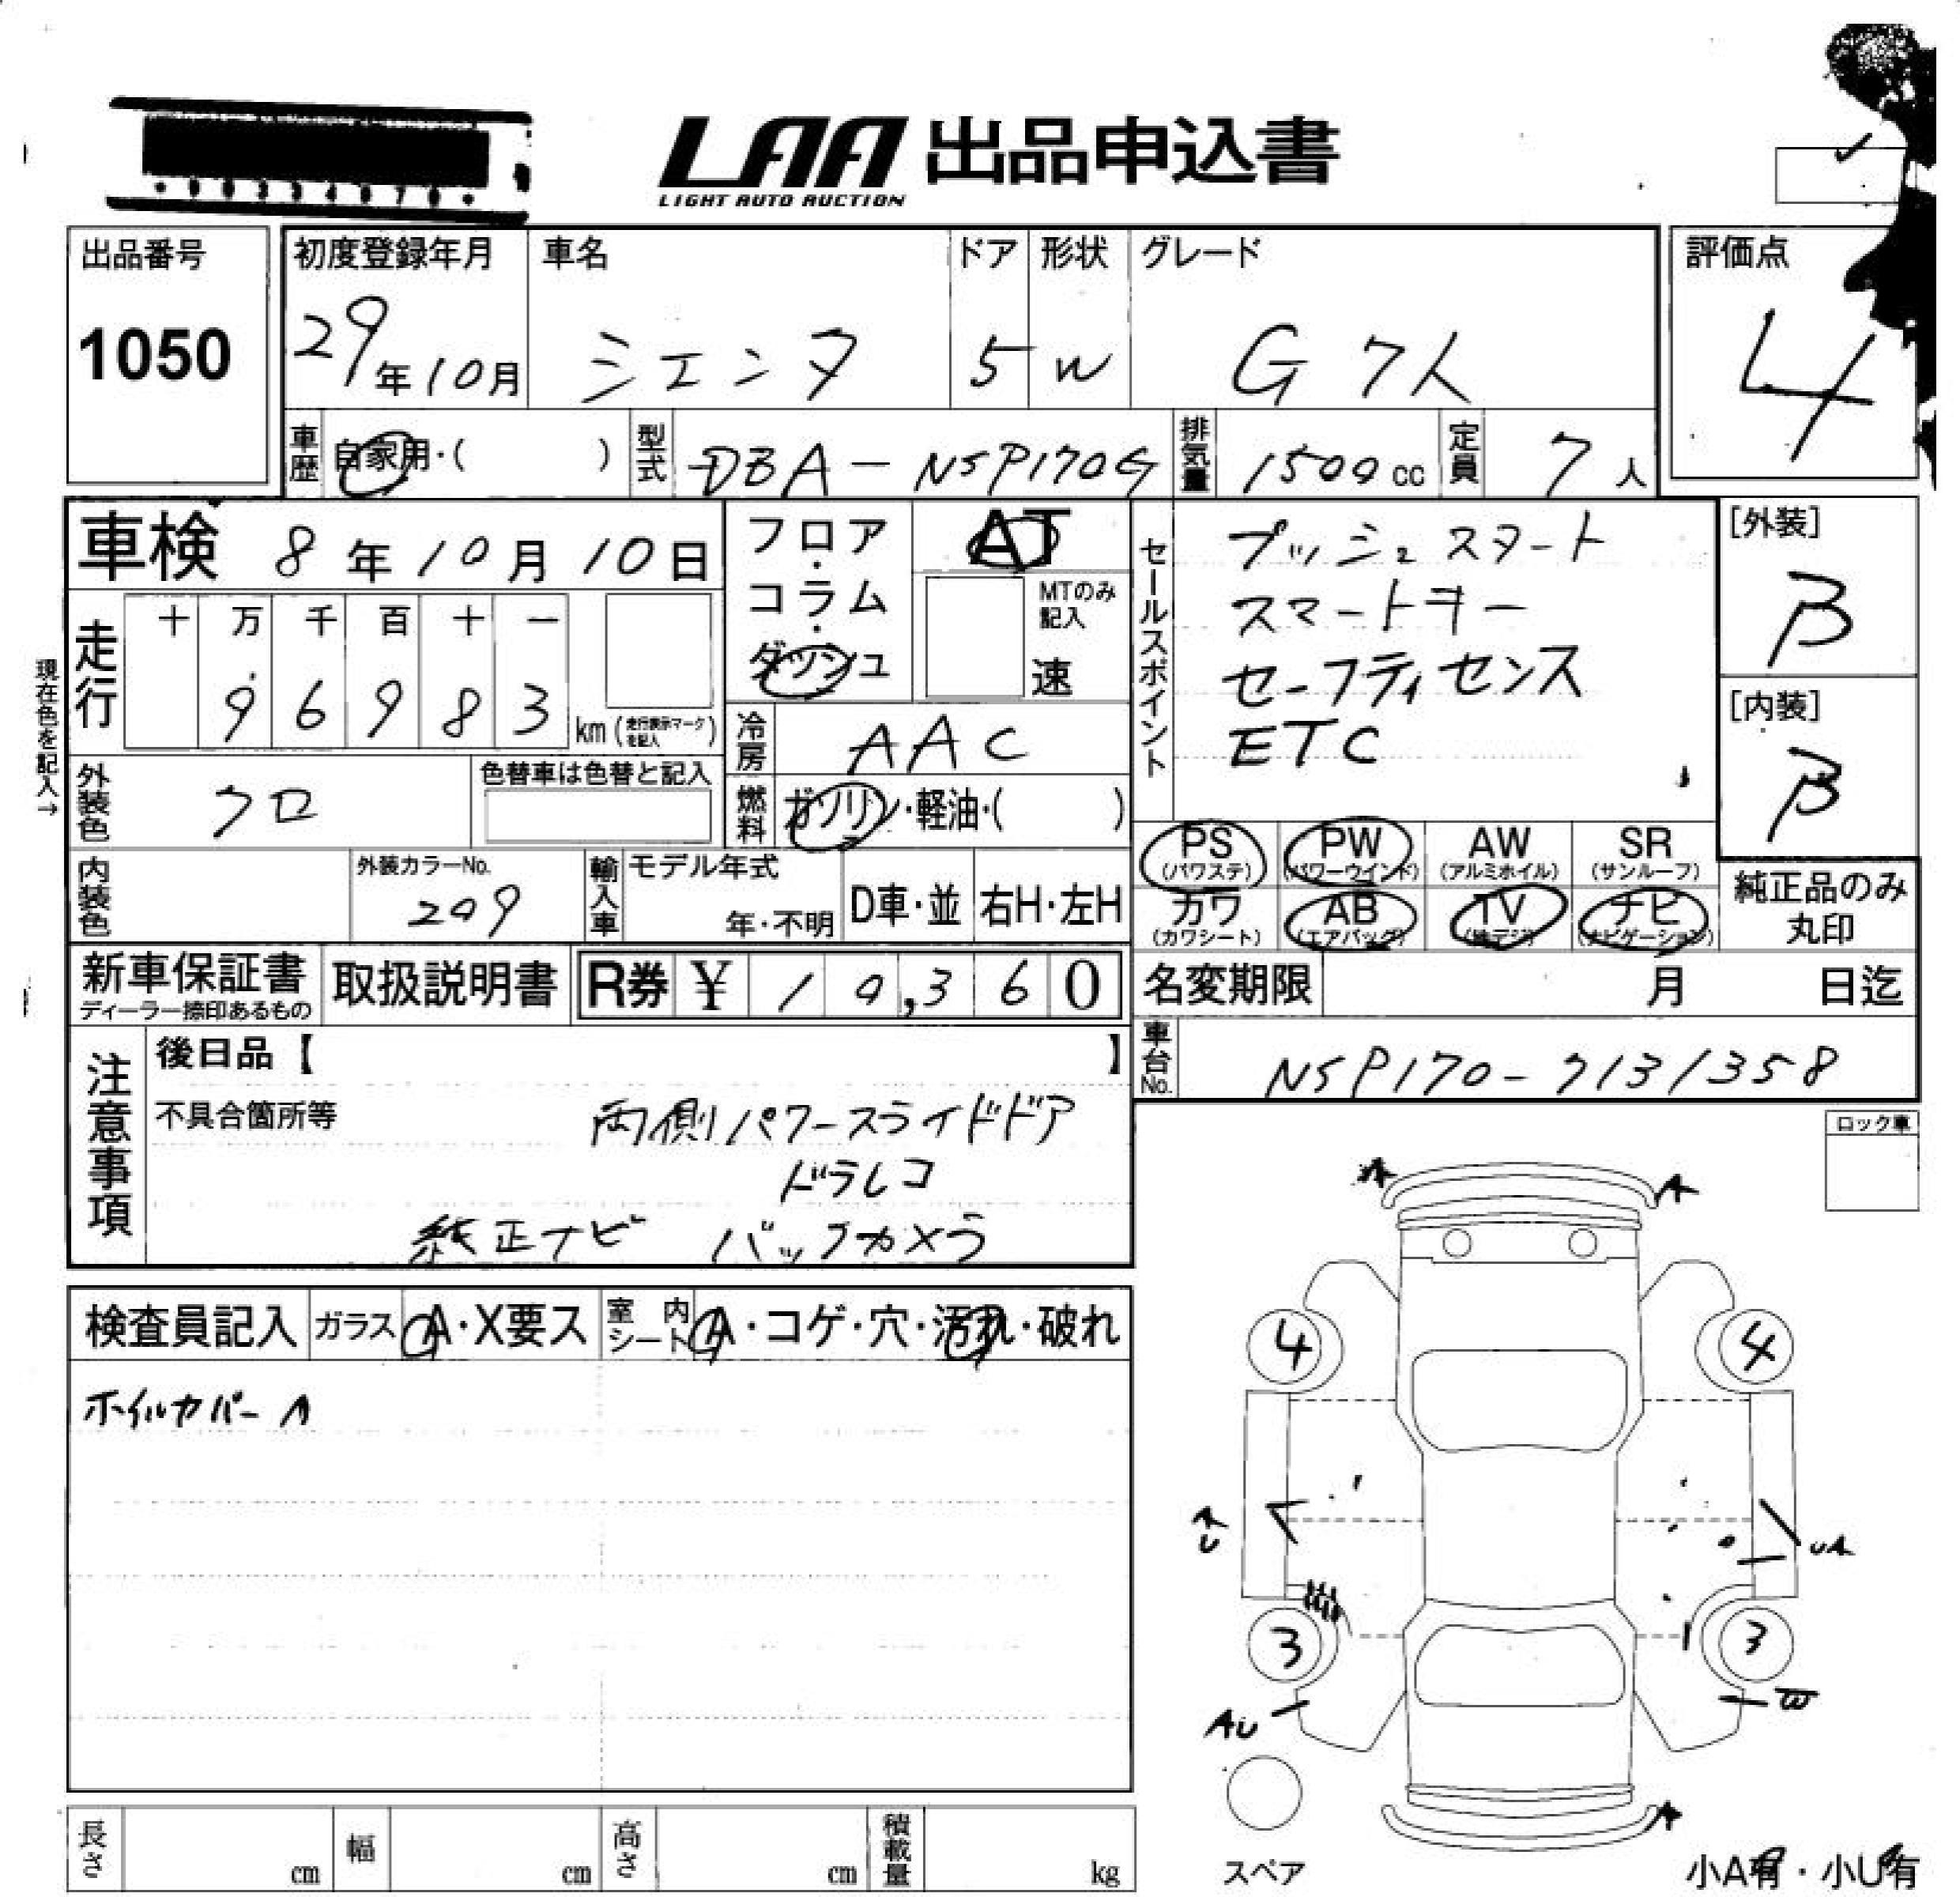 LAA 出品申込書
LIGHT AUTO AUCTION
出品番号
1050
初度登録年月
29年10月
車名
シエンタ
ドア
5
形状
W
グレード
G 7人
評価点
4
車歴 自家用・( )
型式 DBA-NSP170G
排気量 1500cc
定員 7人
車検 8年10月10日
フロア・コラム・ダッシュ
AT
MTのみ記入
速
セールスポイント
プッシュスタート
スマートキー
セーフティセンス
ETC
[外装]
B
[内装]
B
現在色を記入→
走行
十 万 千 百 十 一
9 6 9 8 3 km (走行表示マークを記入)
冷房 AAC
外装色 クロ
色替車は色替と記入
燃料 ガソリン・軽油・( )
PS (パワステ)
PW (パワーウインド)
AW (アルミホイル)
SR (サンルーフ)
カワ (カワシート)
AB (エアバッグ)
TV (地デジ)
ナビ (ナビゲーション)
純正品のみ丸印
内装色
外装カラーNo.
209
輸入車
モデル年式
年・不明
D車・並
右H・左H
新車保証書
ディーラー捺印あるもの
取扱説明書
R券 ¥ 10,360
名変期限 月 日迄
車台No. NSP170-7131358
注意事項
後日品【 】
不具合箇所等
両側パワースライドドア
ドラレコ
純正ナビ バックカメラ
ロック車
検査員記入
ガラス A・X要ス
室内シート A・コゲ・穴・汚れ・破れ
ホイルカバーA
A
A
4
4
UA
3
3
AU
W
A
スペア
小A有・小U有
長さ cm
幅 cm
高さ cm
積載量 kg